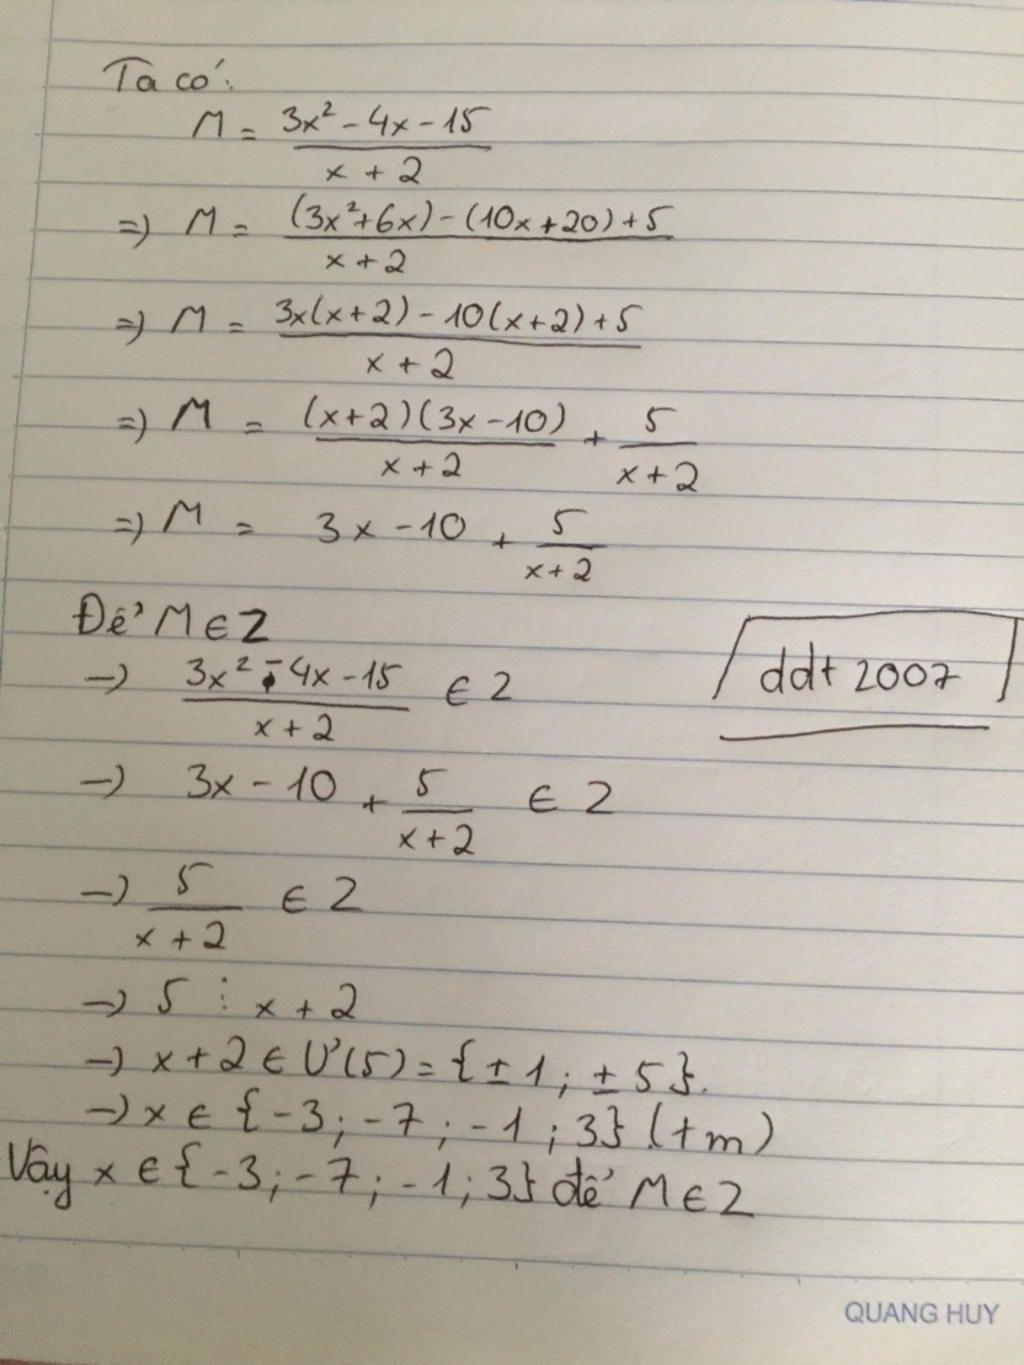 Ta có:
M = (3x² - 4x - 15)/(x + 2)
=) M = ((3x²+6x) - (10x+20) + 5)/(x + 2)
=) M = (3x(x+2) - 10(x+2) + 5)/(x + 2)
=) M = ((x+2)(3x-10))/(x+2) + 5/(x+2)
=) M = 3x - 10 + 5/(x+2)
Để M ∈ Z
-) (3x² - 4x - 15)/(x + 2) ∈ Z
ddt 2007
-) 3x - 10 + 5/(x+2) ∈ Z
-) 5/(x+2) ∈ Z
-) 5 ⋮ x + 2
-) x + 2 ∈ Ư(5) = {±1; ±5}.
-) x ∈ {-3; -7; -1; 3} (tm)
Vậy x ∈ {-3; -7; -1; 3} để M ∈ Z
QUANG HUY